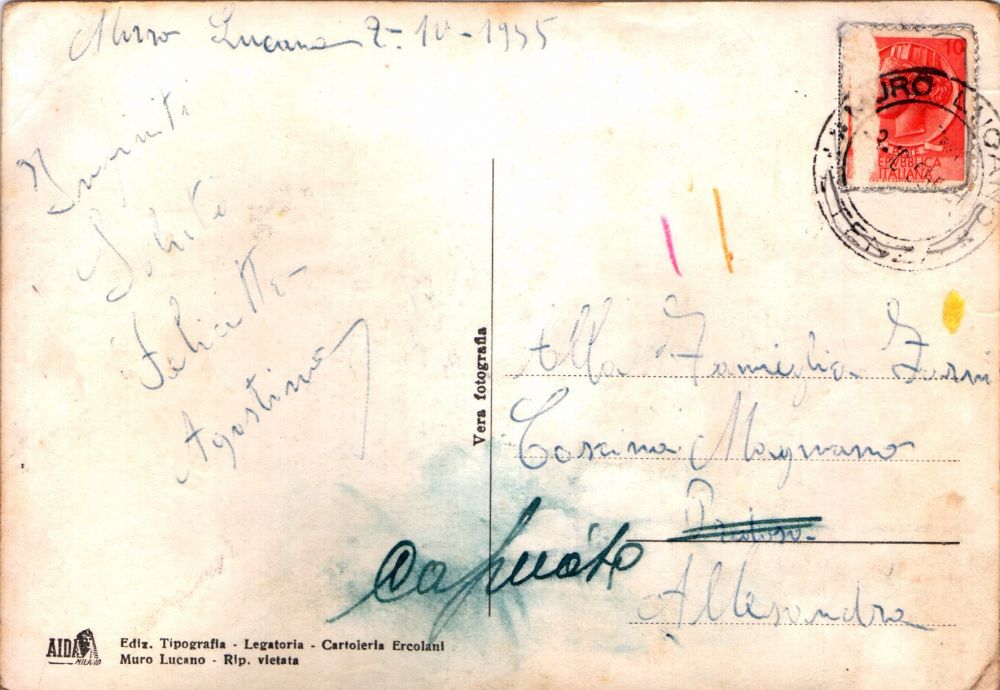 Muro Lucano 7-10-1955
Infiniti
Saluti
Felicetta
Agostino
Vera fotografia
Alla Famiglia
Cascina Magnano
Alessandra
Capuato
10
REPVBBLICA
ITALIANA
MURO LUCANO
AIDA
MILANO
Ediz. Tipografia - Legatoria - Cartoleria Ercolani
Muro Lucano - Rip. vietata